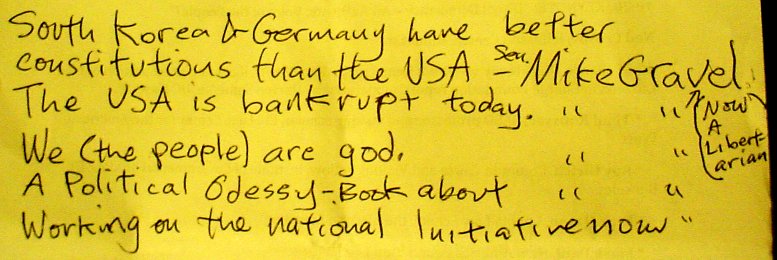 South Korea & Germany have better
constitutions than the USA - Sen. Mike Gravel
The USA is bankrupt today. " " (Now A Libertarian)
We (the people) are god. " "
A Political Odessy - Book about " "
Working on the national Initiative now "